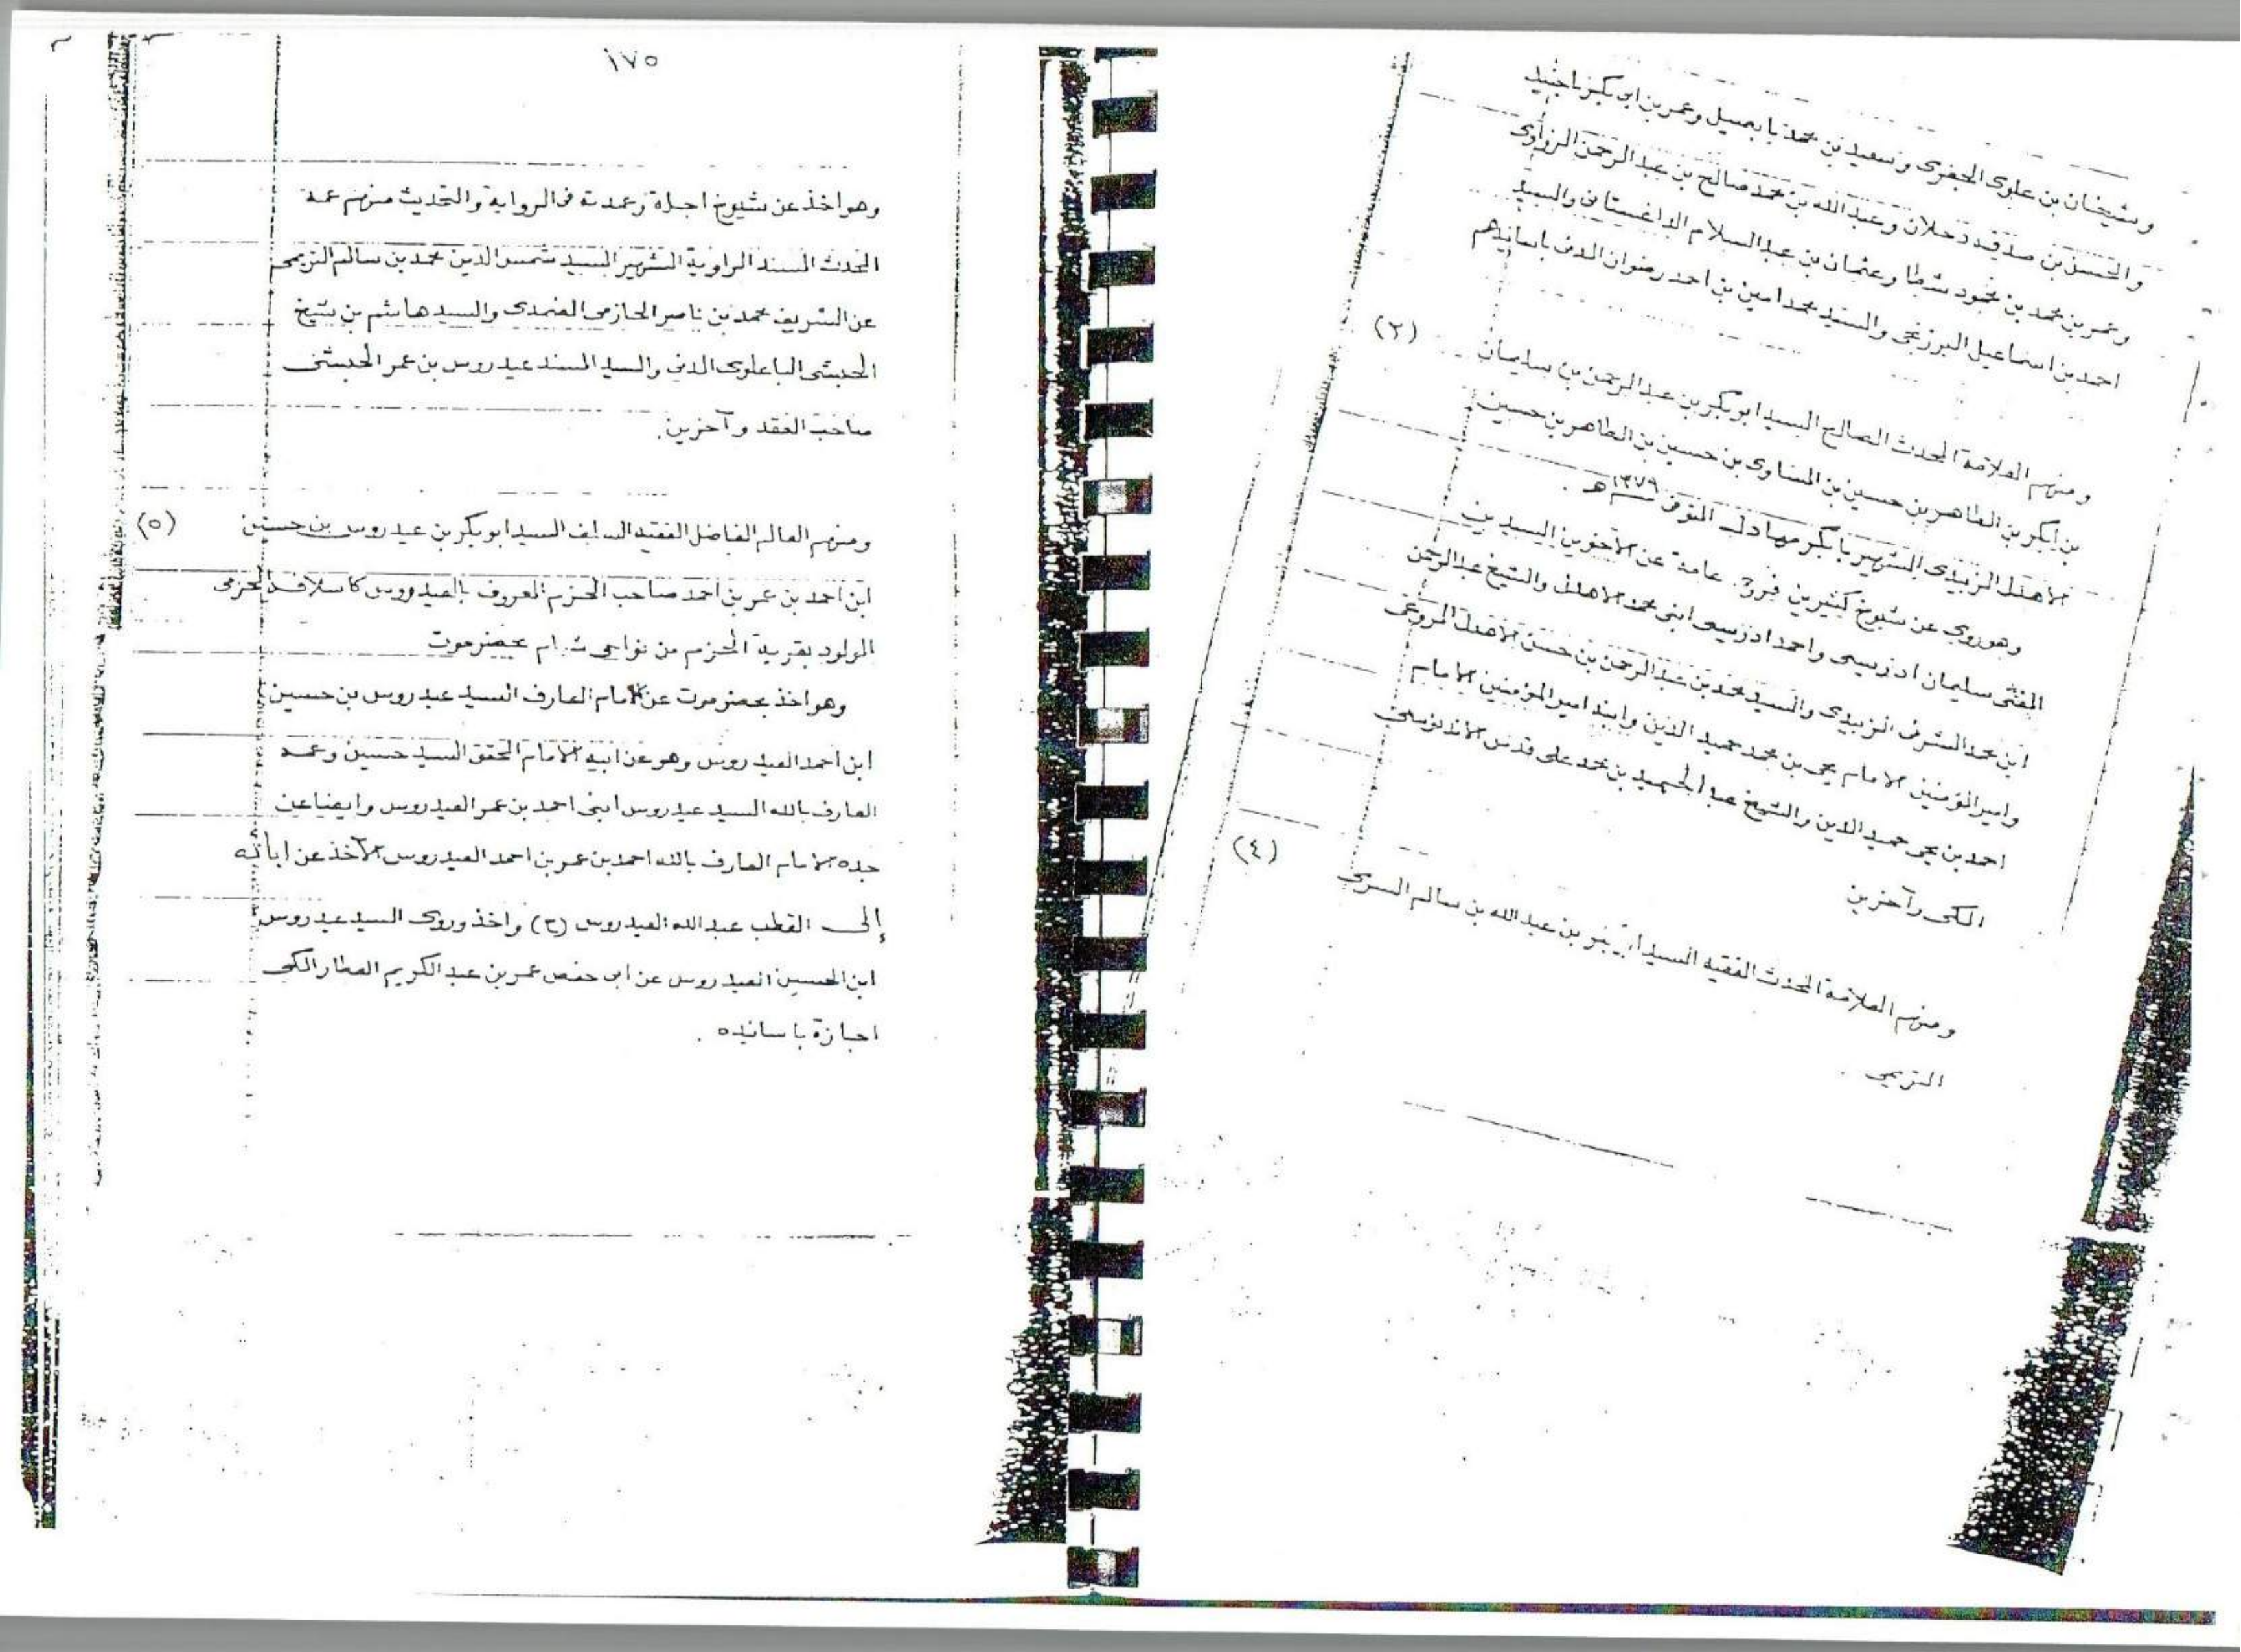 وشيخان بن علوى الحبفرى وسعيد بن محمد بابصيل وعمر بن ابى بكر باجنيد
والحسن بن صدقه دحلان وعبد الله بن محمد صالح بن عبد الرحمن الزواوى
وعمر بن محمد بن محمود شطا وعثمان بن عبد السلام الداغستانى والسيد
احمد بن اسماعيل البرزنجى والسيد محمد امين بن احمد رضوان المدنى باسانيدهم
(٣)
ومنهم العلامة المحدث الصالح السيد ابو بكر بن عبد الرحمن بن سليمان
بن ابكر بن الطاهر بن حسين بن المساوى بن حسين بن الطاهر بن حسين
الاهدل الزبيدى الشهير بابكر مهادل المتوفى ١٣٧٩ هـ .
وهو روى عن شيوخ كثيرين عامة عن الاخوين السيدين
المفتى سليمان ادريسى واحمد ادريسى ابنى محمد الاهدل والشيخ عبد الرحمن
ابن محمد الشرفى الزبيدى والسيد محمد بن عبد الرحمن بن حسن الاهدل المروعى
وامير المؤمنين الامام يحى بن محمد حميد الدين وابنه امير المؤمنين الامام
احمد بن يحى حميد الدين والشيخ عبد الحميد بن محمد على قدس الاندونيسى
المكى وآخرين
(٤)
ومنهم العلامة المحدث الفقيه السيد بن عبد الله بن سالم السرى
التريمى .
١٧٥
وهو اخذ عن شيوخ اجلة وعمدته فى الرواية والتحديث منهم عمه
المحدث المسند الراوية الشهير السيد شمس الدين محمد بن سالم التريمى
عن الشريف محمد بن ناصر الحازمى الضمدى والسيد هاشم بن شيخ
الحبشى الباعلوى المدنى والسيد المسند عيدروس بن عمر الحبشى
صاحب العقد وآخرين .
(٥)
ومنهم العالم الفاضل الفقيه السيد ابو بكر بن عيدروس بن حسين
ابن احمد بن عمر بن احمد صاحب الحزم المعروف بالعيدروس كاسلافه الحزمى
المولود بقرية الحزم من نواحى شبام بحضرموت
وهو اخذ بحضرموت عن الامام العارف السيد عيدروس بن حسين
ابن احمد العيدروس وهو عن ابيه الامام المحقق السيد حسين وعمه
العارف بالله السيد عيدروس ابنى احمد بن عمر العيدروس وايضا عن
جده الامام العارف بالله احمد بن عمر بن احمد العيدروس الآخذ عن ابائه
إلى القطب عبد الله العيدروس (ح) واخذ وروى السيد عيدروس
ابن الحسين العيدروس عن ابى حفص عمر بن عبد الكريم العطار المكى
اجازة باسانيده .